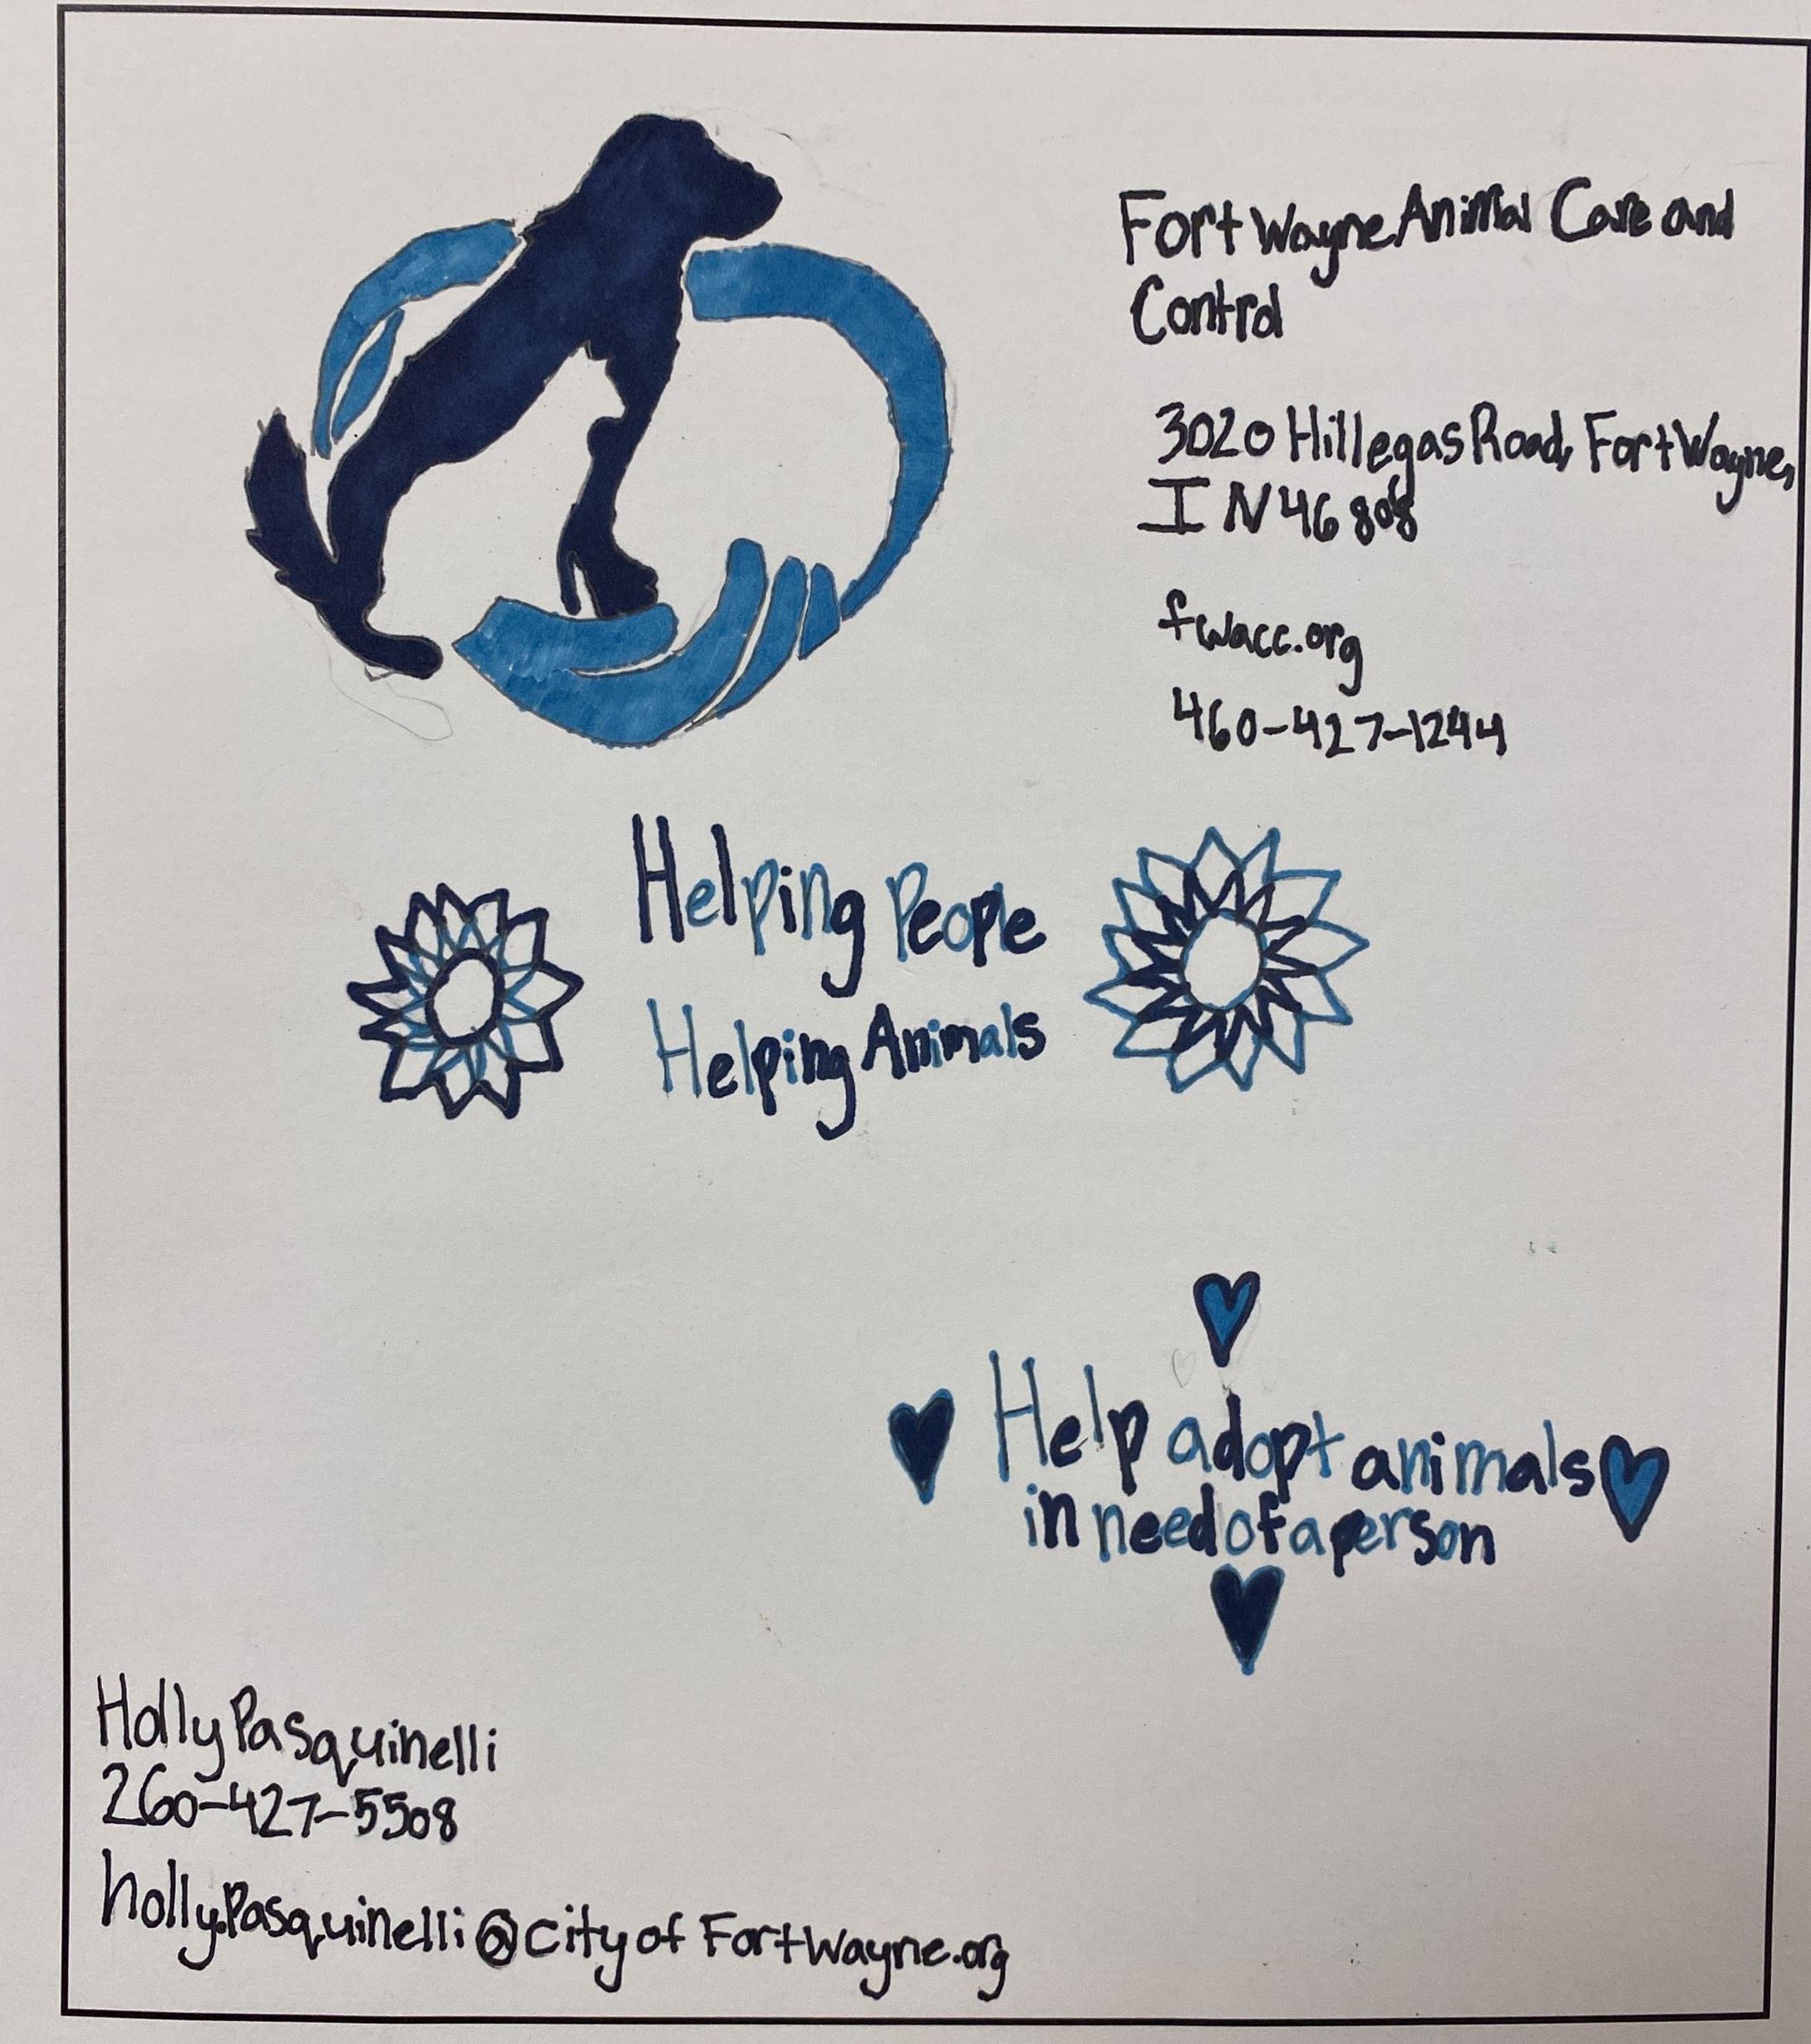 Fort Wayne Animal Care and
Control
3020 Hillegas Road, Fort Wayne,
IN 46808
fwacc.org
460-427-1244
Helping People
Helping Animals
Help adopt animals
in need of a person
Holly Pasquinelli
260-427-5508
holly.Pasquinelli@cityofFortWayne.org